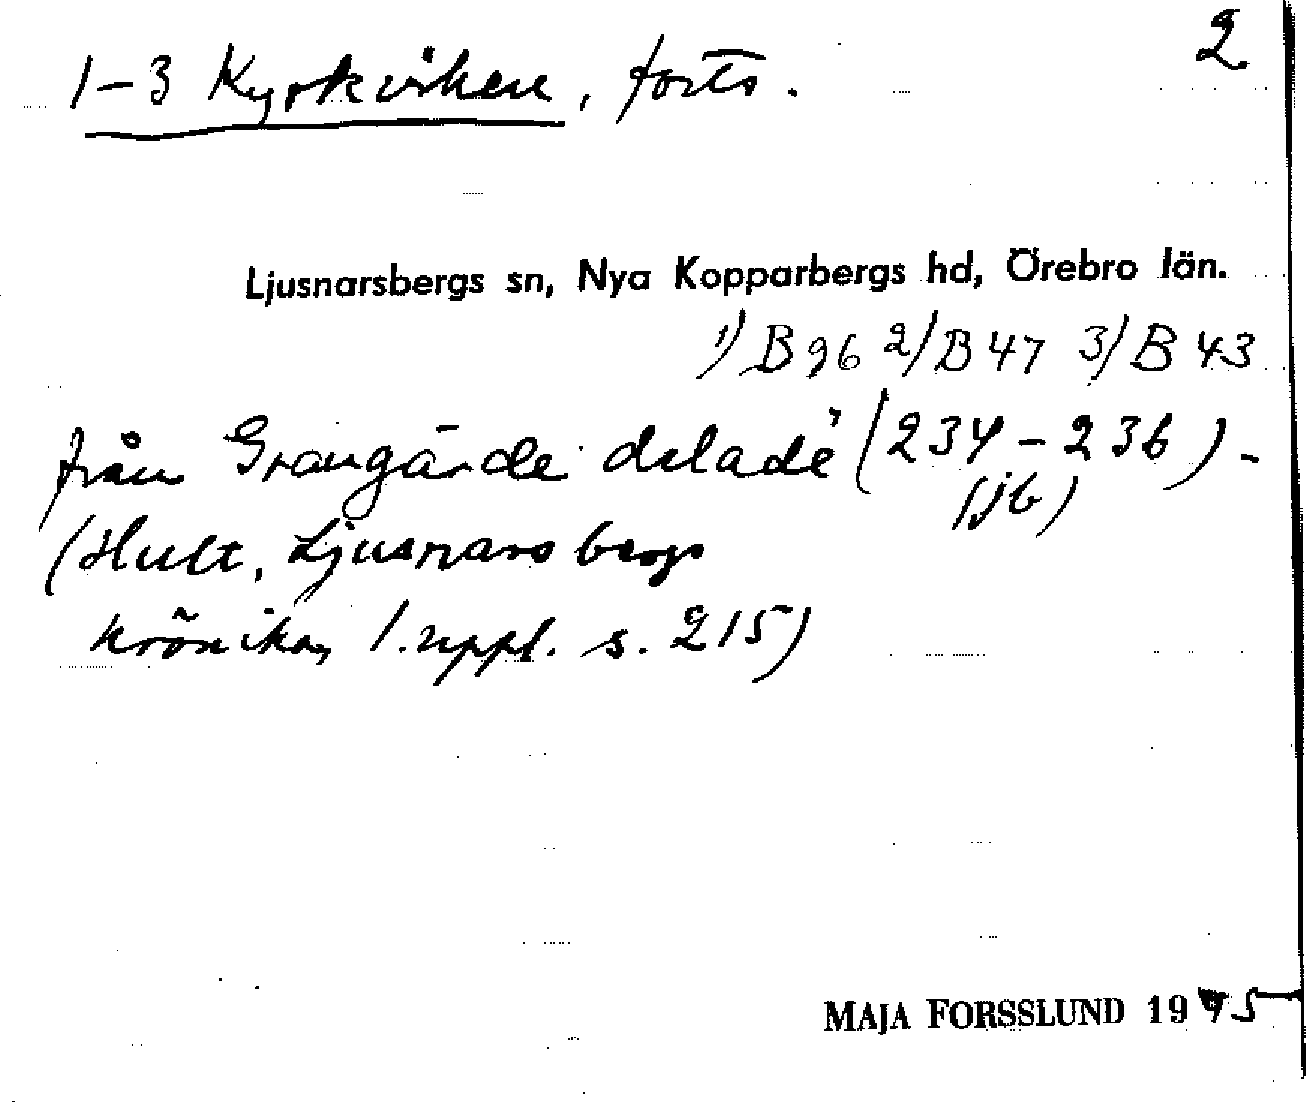 2
1-3 Kyrkviken, forts.
Ljusnarsbergs sn, Nya Kopparbergs hd, Örebro län.
1) B 96 2) B 47 3) B 43
från Grangärde delade (234-236).-
(jb)
(Hult, Ljusnarsbergs
krönika, 1. uppl. s. 215)
MAJA FORSSLUND 19 5